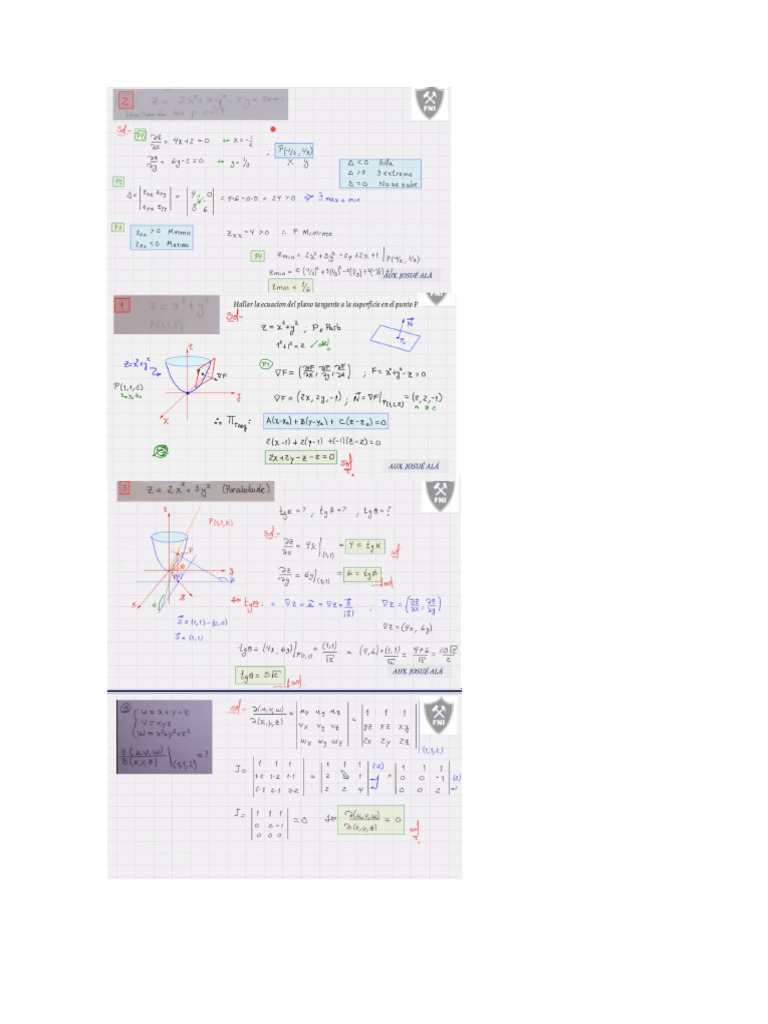 2 z = 2x²+3y²-2y+2x+1
FNI
Sol.-
P1 ∂z/∂x = 4x+2 = 0 → x = -1/2
∂z/∂y = 6y-2 = 0 → y = 1/3 ; P(-1/2, 1/3)
x y
Δ<0 Silla
Δ>0 ∃ extremo
Δ=0 No se sabe
P2
Δ = |zxx zxy| = |4 0| = 4·6-0·0 = 24 > 0 ⇒ ∃ max o min
|zyx zyy| |0 6|
P3
zxx > 0 Minimo
zxx < 0 Maximo
zxx = 4 > 0 ∴ P Minimo
P4 zmin = 2x²+3y²-2y+2x+1 |P(-1/2, 1/3)
zmin = 1/6
AUX. JOSUÉ ALÁ
1 z = x²+y²
P(1,1,2)
Hallar la ecuacion del plano tangente a la superficie en el punto P
FNI
Sol.-
z = x²+y² ; P ∈ Parb
1²+1² = 2 ✓
N
P₀
z
z=x²+y²
P(1,1,2)
x₀ y₀ z₀
∇F
y
x
P1
∇F = (∂F/∂x, ∂F/∂y, ∂F/∂z) ; F = x²+y²-z = 0
∇F = (2x, 2y, -1) ; N = ∇F|P(1,1,2) = (2, 2, -1)
A B C
∴ Π Tang : A(x-x₀) + B(y-y₀) + C(z-z₀) = 0
2(x-1) + 2(y-1) + (-1)(z-2) = 0
2x+2y-z-2 = 0
AUX. JOSUÉ ALÁ
3 z = 2x²+3y² (Paraboloide)
FNI
tgα = ? , tgβ = ? , tgθ = ?
z
P(1,1,5)
Sol.-
∂z/∂x = 4x|(1,1) = 4 = tgα
∂z/∂y = 6y|(1,1) = 6 = tgβ
P
y
x
S = (1,1)-(0,0)
S = (1,1)
tgθ : = ∇z·u = ∇z·S/|S| ; ∇z = (∂z/∂x, ∂z/∂y)
∇z = (4x, 6y)
tgθ = (4x, 6y)|P(1,1) · (1,1)/√2 = (4,6)·(1,1)/√2 = 4+6/√2 = 10√2/2
tgθ = 5√2
AUX. JOSUÉ ALÁ
u = x+y+z
v = xyz
w = x²+y²+z²
∂(u,v,w)/∂(x,y,z)|(1,1,2) = ?
FNI
Sol.-
∂(u,v,w)/∂(x,y,z) = |ux uy uz| = |1 1 1|
|vx vy vz| |yz xz xy|
|wx wy wz| |2x 2y 2z| (1,1,2)
J = |1 1 1| = |1 1 1| (-2) = |1 1 1|
|1·2 1·2 1·1| |2 2 1| |0 0 -1| (2)
|2·1 2·1 2·2| |2 2 4| |0 0 2|
J = |1 1 1| = 0 ∂(u,v,w)/∂(x,y,z) = 0
|0 0 -1|
|0 0 0|